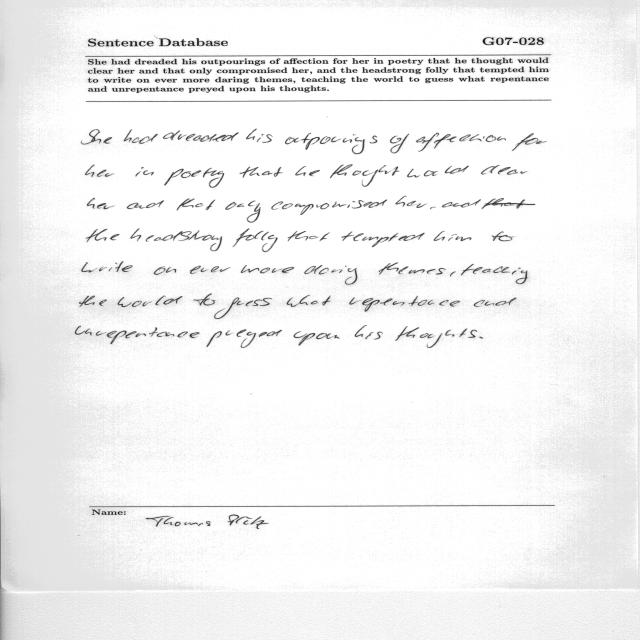 Sentence Database G07-028
She had dreaded his outpourings of affection for her in poetry that he thought would
clear her and that only compromised her, and the headstrong folly that tempted him
to write on ever more daring themes, teaching the world to guess what repentance
and unrepentance preyed upon his thoughts.
She had dreaded his outpourings of affection for
her in poetry that he thought would clear
her and that only compromised her, and that
the headstrong folly that tempted him to
write on ever more daring themes, teaching
the world to guess what repentance and
unrepentance preyed upon his thoughts.
Name: Thomas